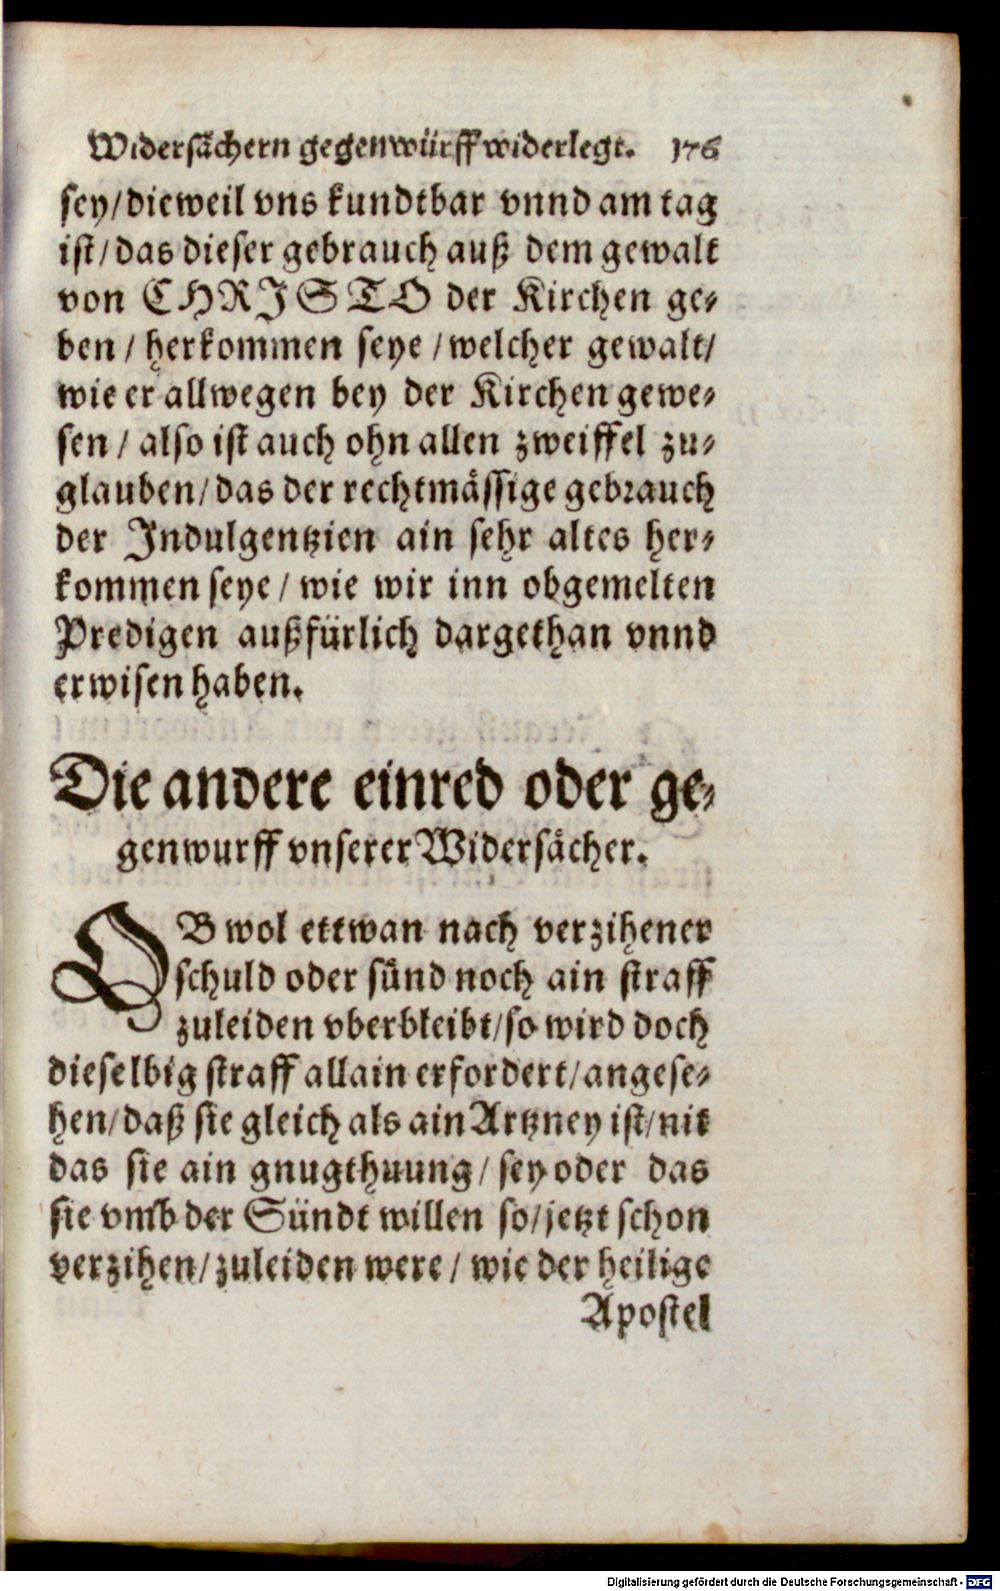 Widersächern gegenwürff widerlegt. 176
sey/dieweil vns kundtbar vnnd am tag
ist/das dieser gebrauch auß dem gewalt
von CHRISTO der Kirchen ge-
ben/herkommen seye/welcher gewalt/
wie er allwegen bey der Kirchen gewe-
sen/also ist auch ohn allen zweiffel zu-
glauben/das der rechtmässige gebrauch
der Indulgentzien ain sehr altes her-
kommen seye/wie wir inn obgemelten
Predigen außfürlich dargethan vnnd
erwisen haben.
Die andere einred oder ge-
genwurff vnserer Widersächer.
OB wol ettwan nach verzihener
schuld oder sünd noch ain straff
zuleiden vberbleibt/so wird doch
dieselbig straff allain erfordert/angese-
hen/daß sie gleich als ain Artzney ist/nit
das sie ain gnugthuung/sey oder das
sie vmb der Sündt willen so/jetzt schon
verzihen/zuleiden were/wie der heilige
Apostel
Digitalisierung gefördert durch die Deutsche Forschungsgemeinschaft - DFG